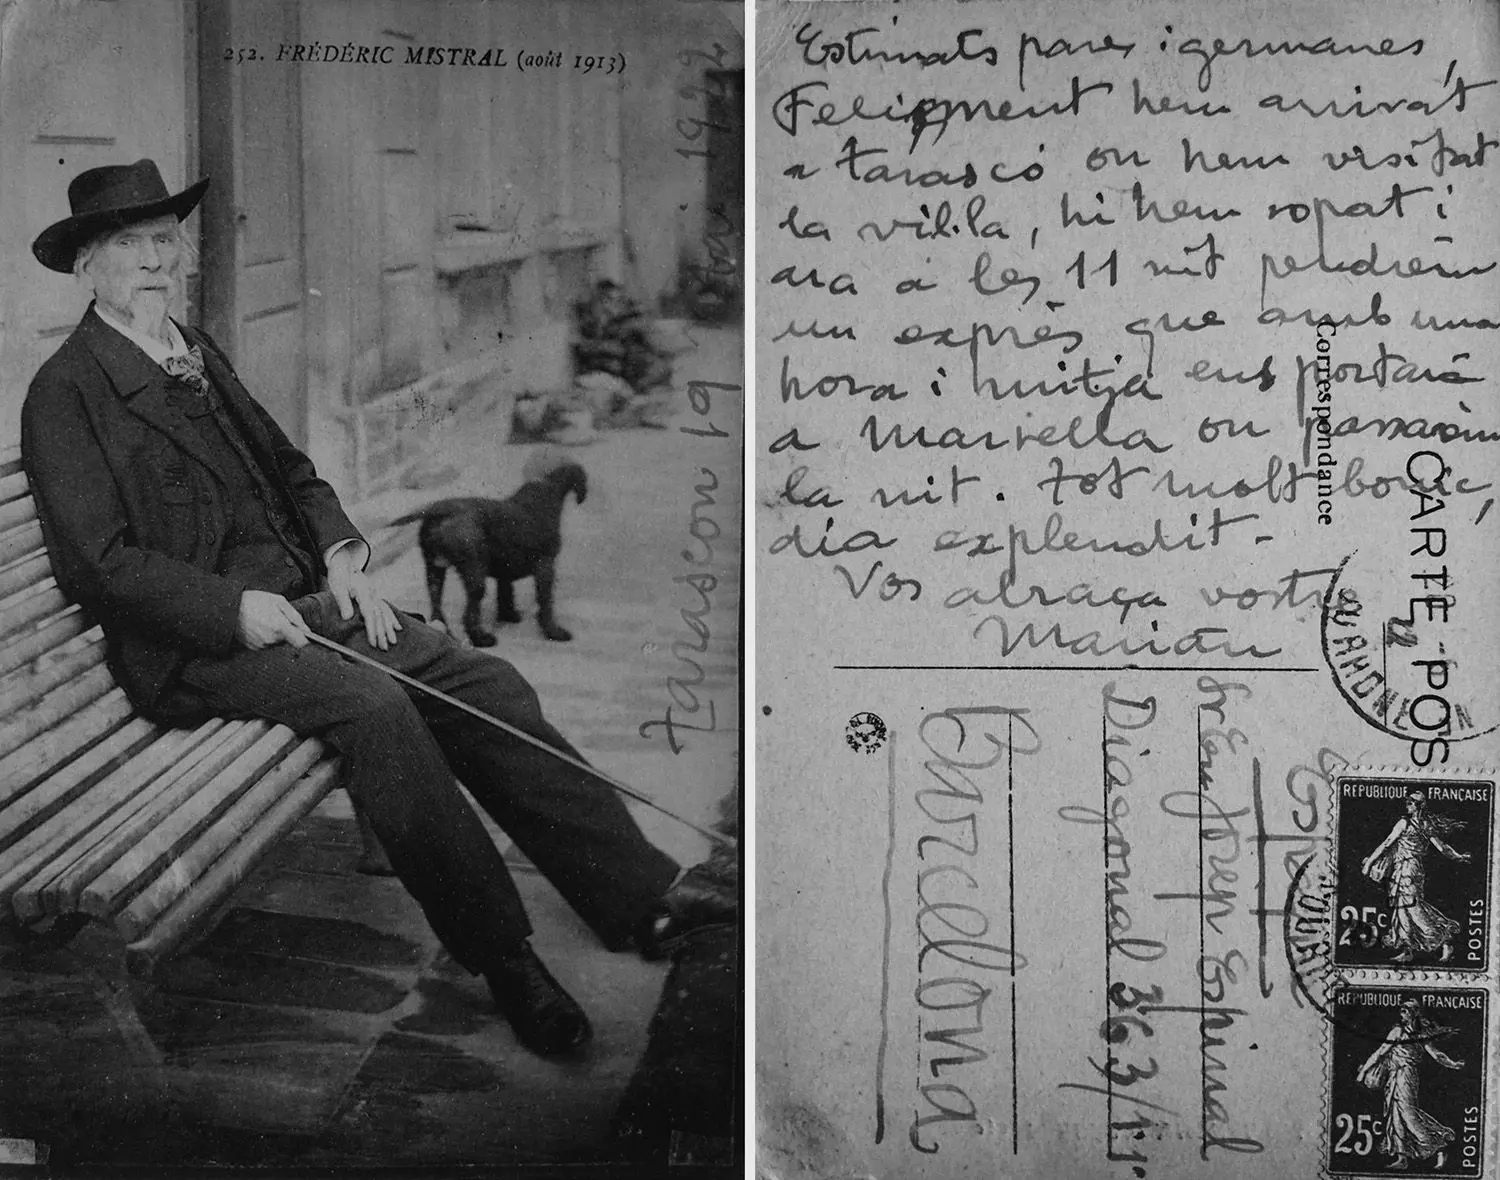 252. FRÉDÉRIC MISTRAL (août 1913)
Tarascon 19 1922
Estimats pares i germanes,
Feliçment hem arrivat
a Tarascó on hem visitat
la vil·la, hi hem sopat i
ara a les 11 nit pendrem
un exprés que amb una
hora i mitja ens portarà
a Marsella on passarèm
la nit. Tot molt bonic,
dia explendit -
Vos abraça vostre
Marian
Correspondance
CARTE-POS
Espa
Sr En Josep Espinal
Diagonal 363/1.1
Barcelona
RÉPUBLIQUE FRANÇAISE
25c
POSTES
RÉPUBLIQUE FRANÇAISE
25c
POSTES